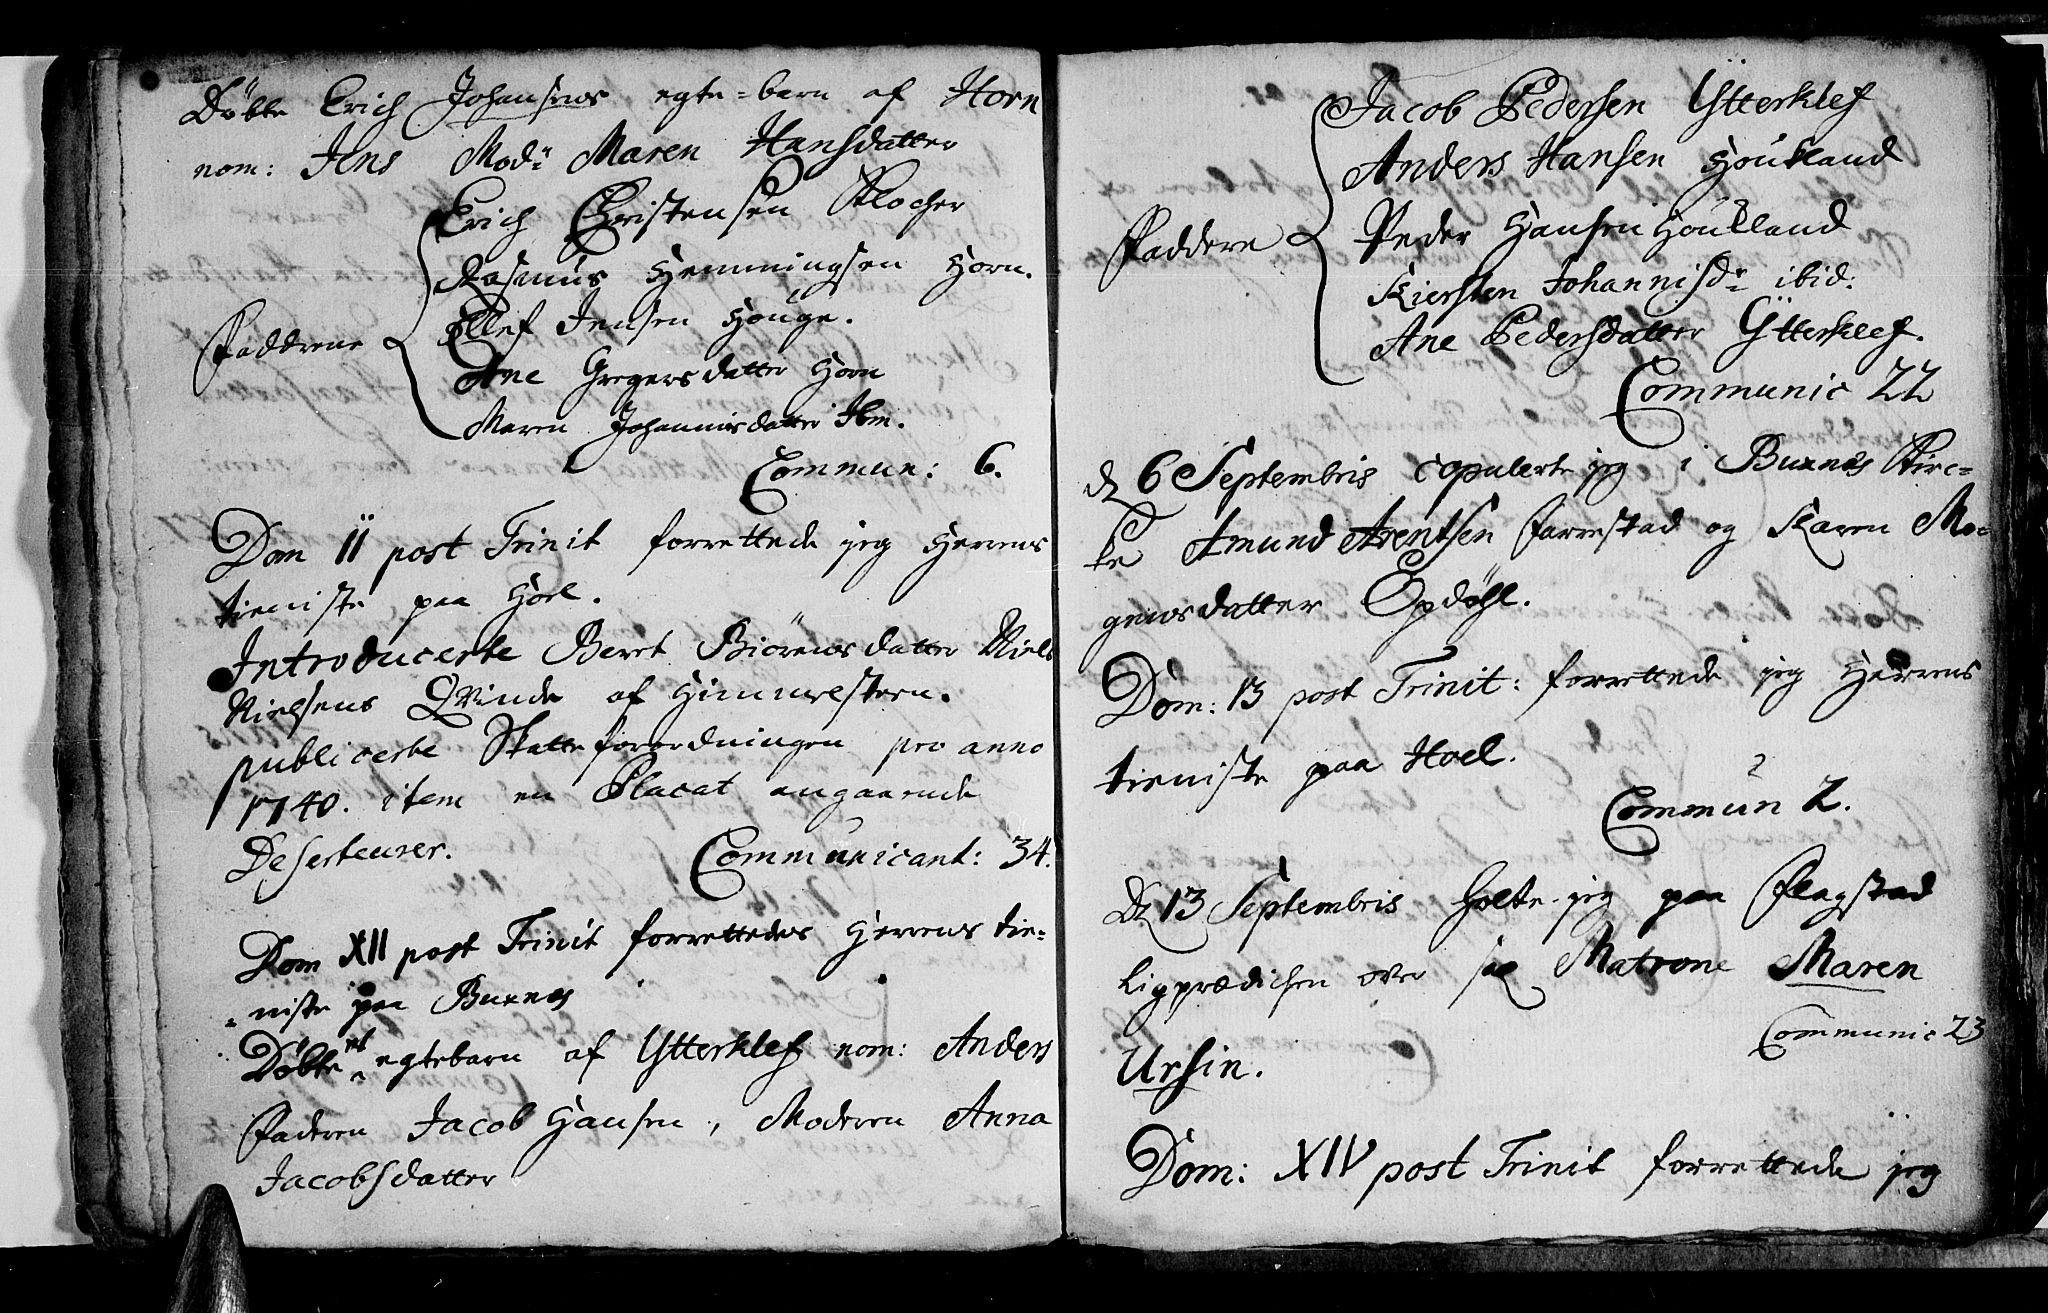 Döbte Erich Johansens egte-barn af Horn
nom: Jens Mod: Maren Hansdatter
Erich Christensen Klocher
Rasmus Hemmingsen Horn.
Ellef Jensen Houge.
Faddrene
Ane Gregersdatter Horn
Maren Johannisdatter Ibm.
Commun: 6.
Dom 11 post Trinit forrettede jeg Herrens
tieniste paa Hoel.
Introducerte Beret Biörensdatter Niels
Nielsens Qvinde af Himmestern.
publicerte Skatteforordningen pro anno
1740. item en Placat angaaende
Deserteurer. Communicant: 34.
Dom XII post Trinit forrettedes Herrens tie-
-niste paa Buxnæs
Döbte et egtebarn af Ytterklef nom: Anders
Faderen Jacob Hansen, Moderen Anna
Jacobsdatter
Jacob Pedersen Ytterklef
Anders Hansen Houkland
Faddere Peder Hansen Houkland
Kiersten Johannisd: ibid:
Ane Pedersdatter Ytterklef.
Communic 22
d 6 Septembris copulerte jeg i Buxnæs Kirc-
ke Amund Arentsen Farrestad og Karen Mo-
gensdatter Opdöhl.
Dom: 13 post Trinit: forrettede jeg Herrens
tieniste paa Hoel.
2
Commun 2.
D 13 Septembris holte jeg paa Flagstad
Ligprædichen over sal Matrone Maren
Communic 23
Ursin.
Dom: XIV post Trinit forrettede jeg